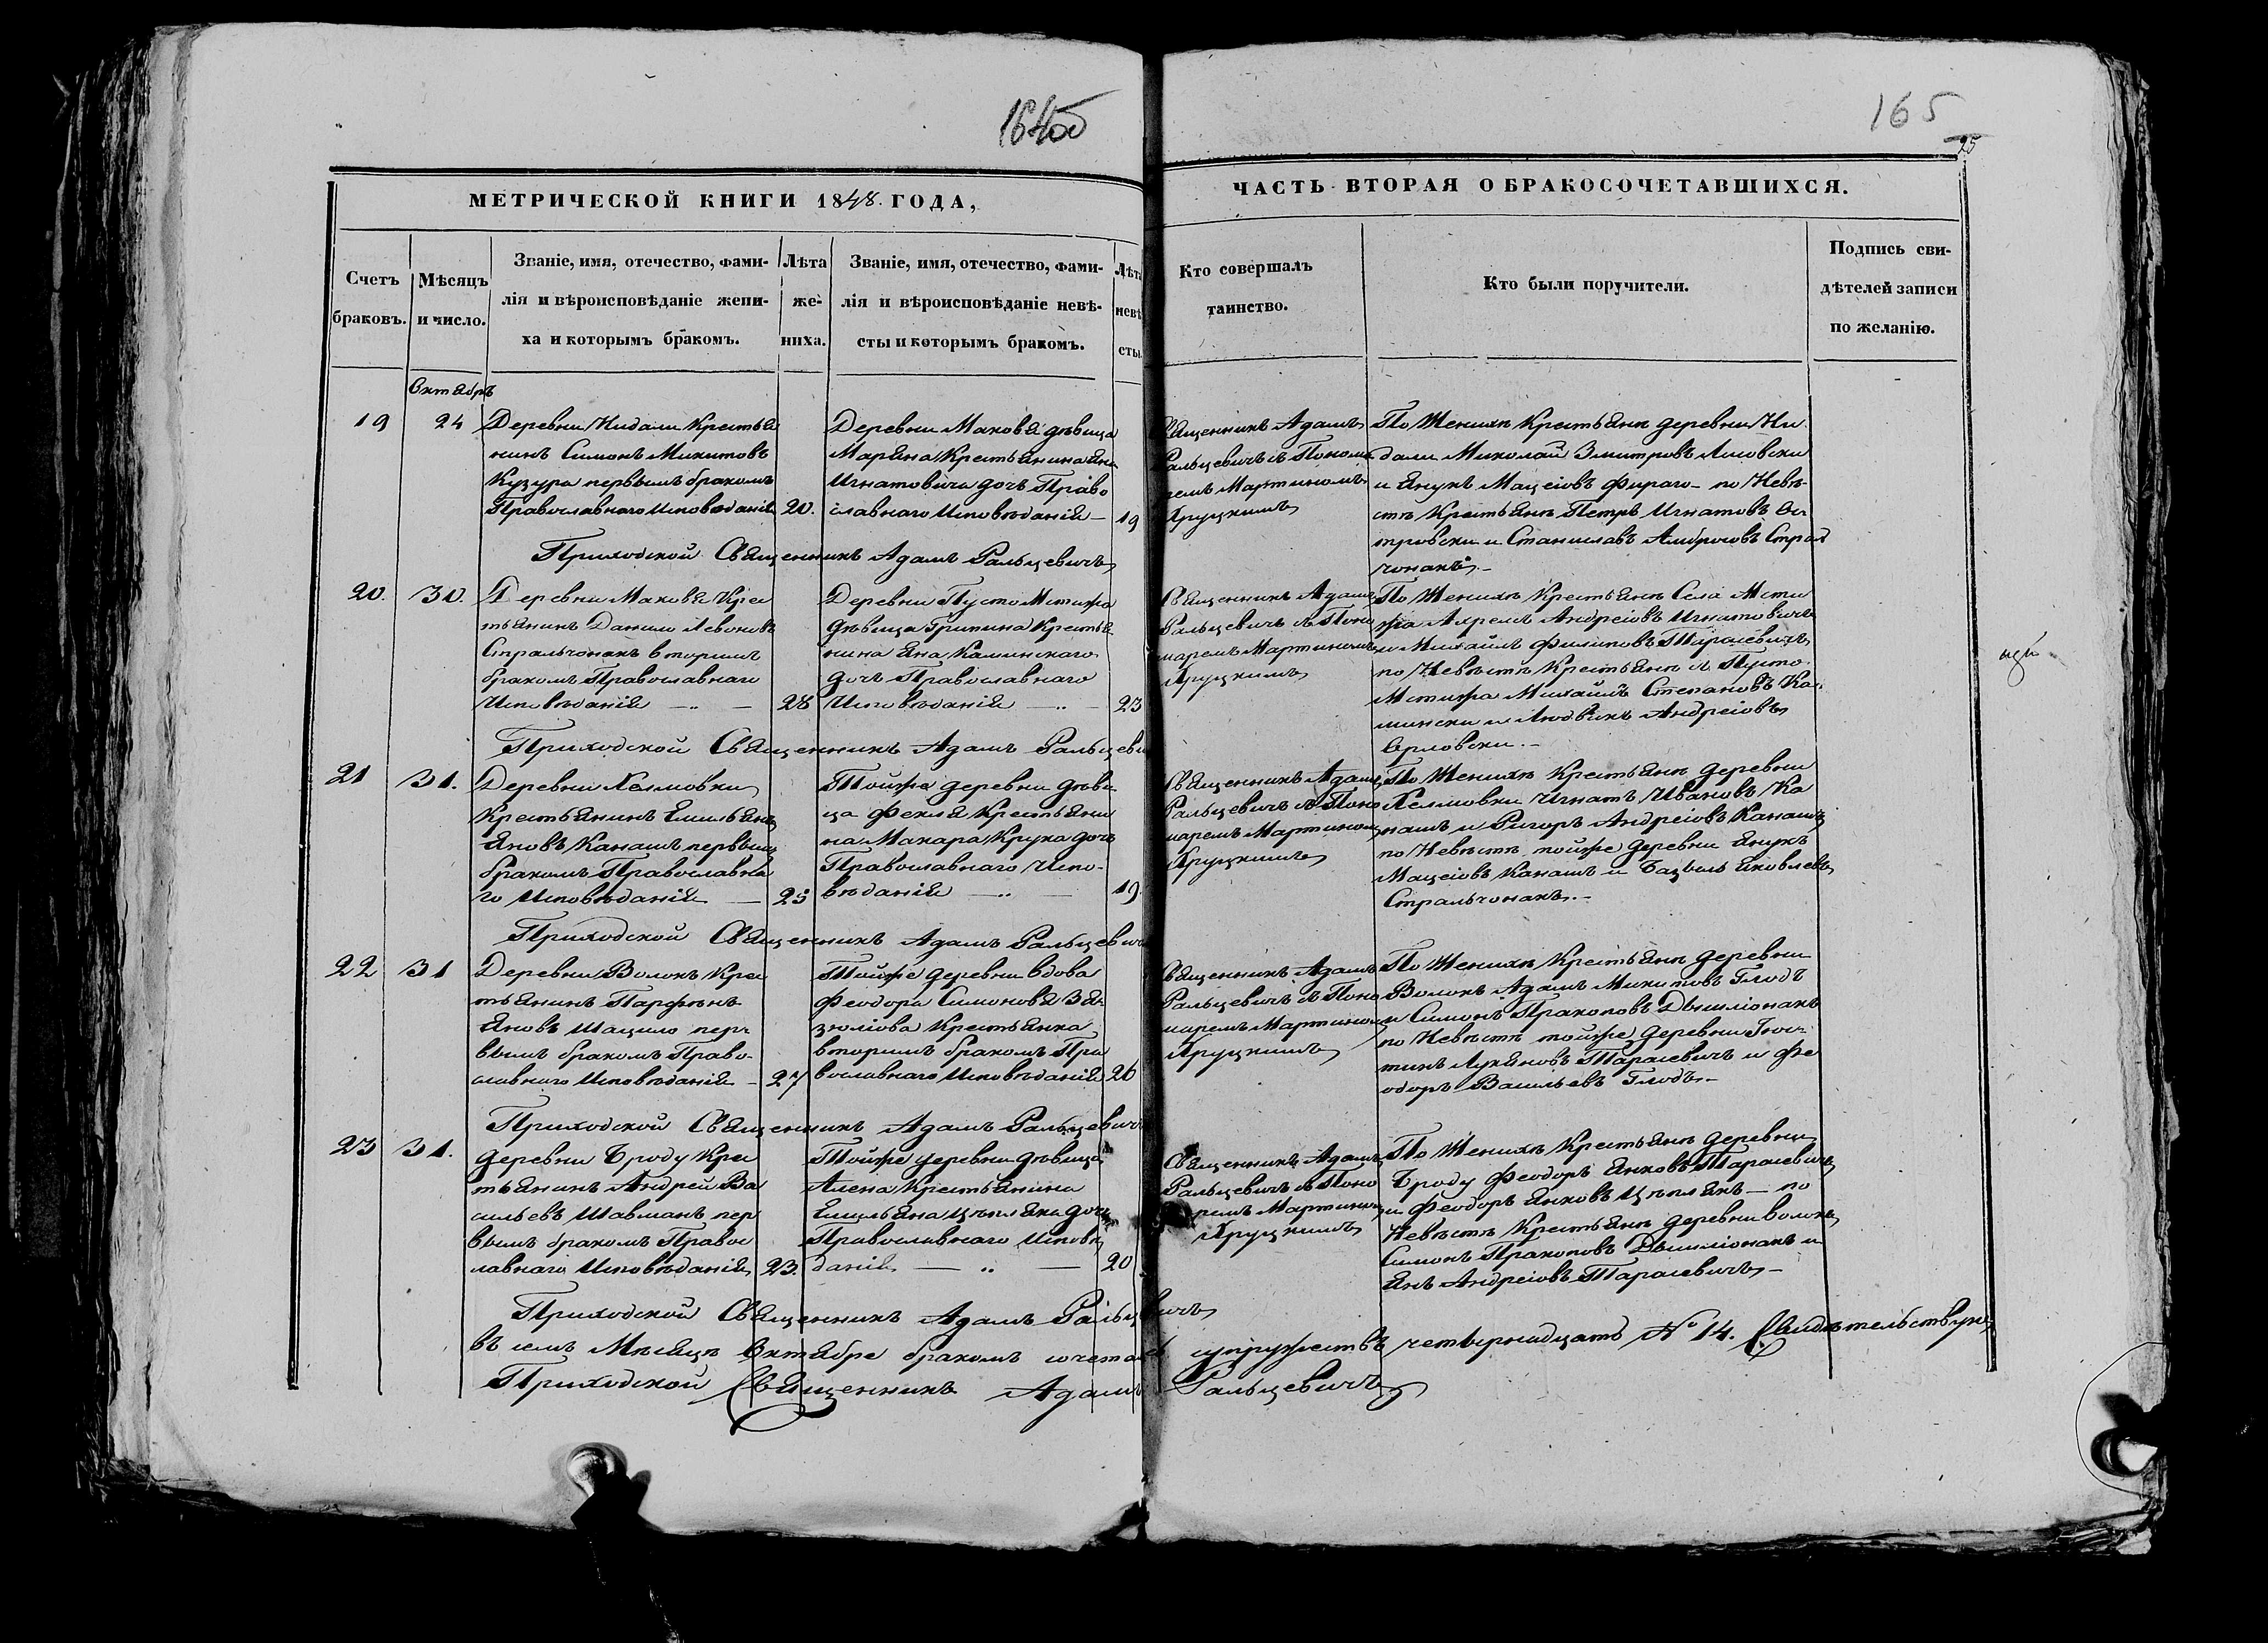 164об
165
25
МЕТРИЧЕСКОЙ КНИГИ 1848. ГОДА,
ЧАСТЬ ВТОРАЯ О БРАКОСОЧЕТАВШИХСЯ.
Счетъ
браковъ.
Мѣсяцъ
и число.
Званіе, имя, отечество, фами-
лія и вѣроисповѣданіе жени-
ха и которымъ бракомъ.
Лѣта
же-
ниха.
Званіе, имя, отечество, фами-
лія и вѣроисповѣданіе невѣ-
сты и которымъ бракомъ.
Лѣта
невѣ
сты.
Кто совершалъ
таинство.
Кто были поручители.
Подпись сви-
дѣтелей записи
по желанію.
Октябръ
19
24
Деревни Нидали Крестья
нинъ Симонъ Микитовъ
Кузура первымъ бракомъ
Православнаго Исповѣданія
20.
Деревни Маковья дѣвица
Марьяна Крестьянина Яна
Игнатовича дочь Право
славнаго Исповѣданія —
19
Священникъ Адамъ
Ральцевичъ съ Понома
ремъ Мартиномъ
Хруцкимъ
По Женихѣ Крестьяне деревни Ни
дали Миколай Змитровъ Лисовски
и Янукъ Мацеіовъ Фираго — по Невѣ
стѣ Крестьяне Петръ Игнатовъ Ос
тровски и Станиславъ Амброзовъ Страль
чонакъ. —
Приходской Священникъ Адамъ Ральцевичъ
20.
30.
Деревни Маковья Крес
тьянинъ Данило Левоновъ
Стральчонакъ вторимъ
бракомъ Православнаго
Исповѣданія — „ —
28
Деревни ПустоМстижа
дѣвица Грипина Крестья
нина Яна Каминскаго
дочь Православнаго
Исповѣданія — „ —
23
Священникъ Адамъ
Ральцевичъ съ Поно
маремъ Мартиномъ
Хруцкимъ
По Женихѣ Крестьяне Села Мсти
жа Ахремъ Андреіовъ Игнатовичъ
и Михайлъ Филиповъ Тарасевичъ
по Невѣстѣ Крестьяне съ Пусто
Мстижа Михайлъ Степановъ Ка
мински и Людвикъ Андреіовъ
Орловски. —
Приходской Священникъ Адамъ Ральцеви
21
31.
Деревни Холмовки
Крестьянинъ Емильянъ
Яновъ Канашъ первымъ
бракомъ Православна
го Исповѣданія —
25
Тойже деревни дѣви
ца Фекля Крестьяни
на Макара Крука дочь
Православнаго Испо-
вѣданія — „ —
19.
Священникъ Адамъ
Ральцевичъ съ Поно
маремъ Мартиномъ
Хруцкимъ
По Женихѣ Крестьяне деревни
Холмовки Игнатъ Ивановъ Ка
нашъ и Ригоръ Андреіовъ Канашъ
по Невѣстѣ тойже деревни Янукъ
Мацеіовъ Канашъ и Базыль Яковлевъ
Стральчонакъ. —
Приходской Священникъ Адамъ Ральцевич
22
31
Деревни Волокъ Крес
тьянинъ Парфенъ
Яновъ Шацило пер-
вымъ бракомъ Право-
славнаго Исповѣданія —
27
Тойже деревни вдова
Феодора Симоновя
Крестьянка
вторимъ бракомъ Пра
вославнаго Исповѣданія
26
Священникъ Адамъ
Ральцевичъ съ Поно
маремъ Мартиномъ
Хруцкимъ
По Женихѣ Крестьяне деревни
Волокъ Адамъ Микитовъ Глодъ
и Симонъ Пракоповъ
по Невѣстѣ тойже деревни Іюс-
тинъ Лукяновъ Тарасевичъ и Фе
одоръ Васильевъ Глодъ. —
Приходской Священникъ Адамъ Ральцевич
23
31.
деревни Броду Крес
тьянинъ Андрей Ва
сильевъ Шавманъ пер
вымъ бракомъ Правос
лавнаго Исповѣданія
23.
Тойже деревни дѣвица
Алена Крестьянина
Емильяна Цѣпляка дочь
Православнаго Исповѣ
данія — „ —
20
Священникъ Адамъ
Ральцевичъ съ Поно
ремъ Мартиномъ
Хруцкимъ
По Женихѣ Крестьяне деревни
Броду Феодоръ Янковъ Тарасевичъ
и Феодоръ Янковъ Цѣплякъ — по
Невѣстѣ Крестьяне деревни Волокъ
Симонъ Пракоповъ и
Янъ Андреіовъ Тарасевичъ —
Приходской Священникъ Адамъ Ральцевичъ
Въ семъ Мѣсяцѣ Октябре бракомъ сочетано супружествъ четырнадцать № 14. Свидѣтельствую
Приходской Священникъ Адамъ Ральцевичъ